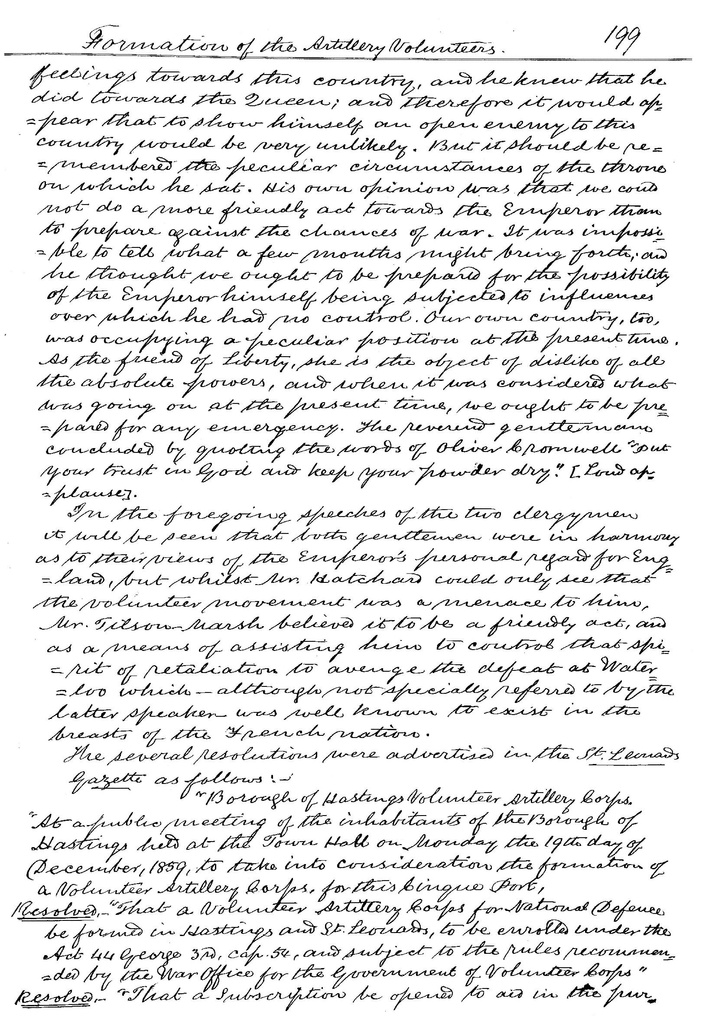 Formation of the Artillery Volunteers. 199
feelings towards this country, and he knew that he
did towards the Queen; and therefore it would ap=
=pear that to show himself an open enemy to this
country would be very unlikely. But it should be re=
=membered the peculiar circumstances of the throne
on which he sat. His own opinion was that we could
not do a more friendly act towards the Emperor than
to prepare against the chances of war. It was impossi=
=ble to tell what a few months might bring forth; and
he thought we ought to be prepared for the possibility
of the Emperor himself being subjected to influences
over which he had no control. Our own country, too,
was occupying a peculiar position at the present time.
As the friend of Liberty, she is the object of dislike of all
the absolute powers, and when it was considered what
was going on at the present time, we ought to be pre=
=pared for any emergency. The reverend gentleman
concluded by quoting the words of Oliver Cromwell "Put
your trust in God and keep your powder dry". [Loud ap=
=plause].
In the foregoing speeches of the two clergymen
it will be seen that both gentlemen were in harmony
as to their views of the Emperor's personal regard for Eng=
=land, but whilst Mr. Hatchard could only see that
the volunteer movement was a menace to him,
Mr. Tilson-Marsh believed it to be a friendly act, and
as a means of assisting him to control that spi=
=rit of retaliation to avenge the defeat at Water=
=loo which – although not specially referred to by the
latter speaker – was well known to exist in the
breasts of the French nation.
The several resolutions were advertised in the St. Leonards
Gazette as follows:–
"Borough of Hastings Volunteer Artillery Corps.
"At a public meeting of the inhabitants of the Borough of
Hastings held at the Town Hall on Monday the 19th day of
December, 1859, to take into consideration the formation of
a Volunteer Artillery Corps, for this Cinque Port,
Resolved,– "That a Volunteer Artillery Corps for National Defence
be formed in Hastings and St. Leonards, to be enrolled under the
Act 44 George 3rd, cap. 54, and subject to the rules recommen=
=ded by the War Office for the Government of Volunteer Corps"
Resolved,– "That a Subscription be opened to aid in the pur-